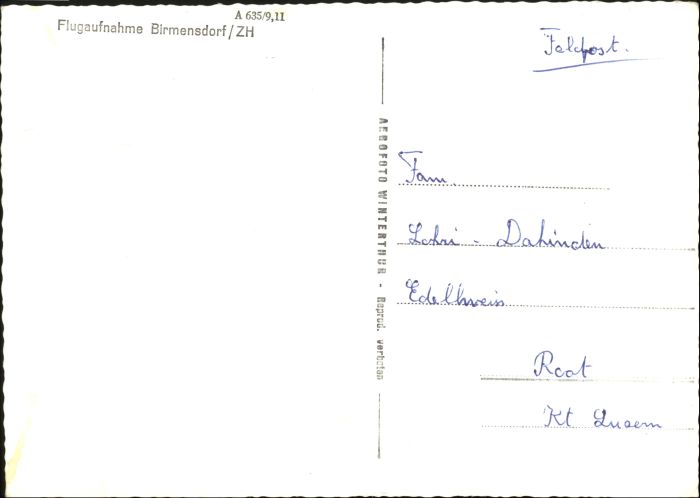 A 635/9,11
Flugaufnahme Birmensdorf/ZH
Feldpost.
AEROFOTO WINTERTHUR - Reprod. verboten
Fam.
Lohri - Dahinden
Edelweiss
Root
Kt Luzern